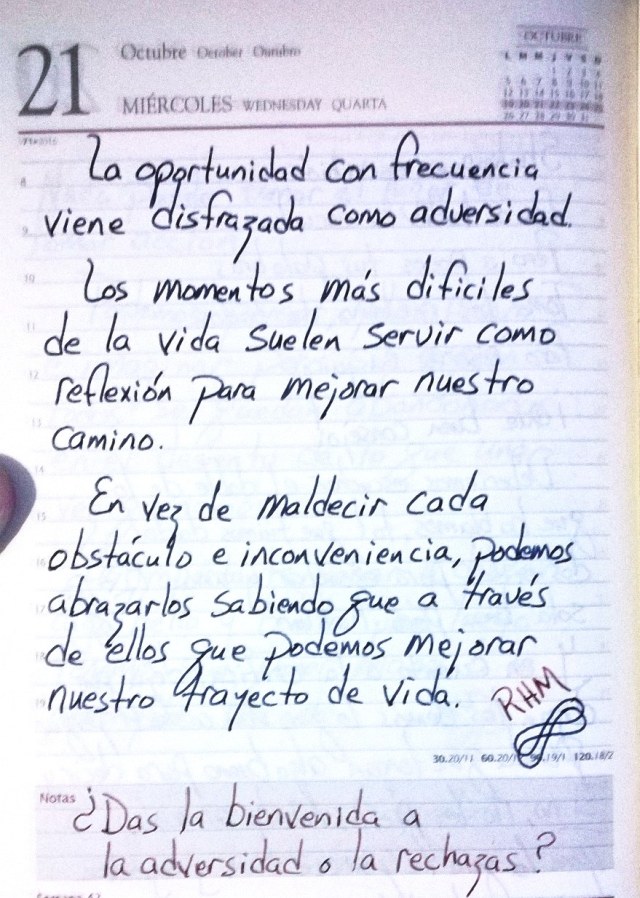 21
Octubre October Outubro
MIÉRCOLES WEDNESDAY QUARTA
OCTUBRE
L M M J V S D
1 2 3 4
5 6 7 8 9 10 11
12 13 14 15 16 17 18
19 20 21 22 23 24 25
26 27 28 29 30 31
8
La oportunidad con frecuencia
9
viene disfrazada como adversidad.
10
Los momentos más dificiles
11
de la vida suelen servir como
12
reflexión para mejorar nuestro
13
camino.
14
En vez de maldecir cada
15
16
obstáculo e inconveniencia, podemos
17
abrazarlos sabiendo que a través
18
de ellos que podemos mejorar
19
nuestro trayecto de vida.
RHM
30.20/11 60.20/1 19/1 120.18/2
Notas
¿Das la bienvenida a
la adversidad o la rechazas?